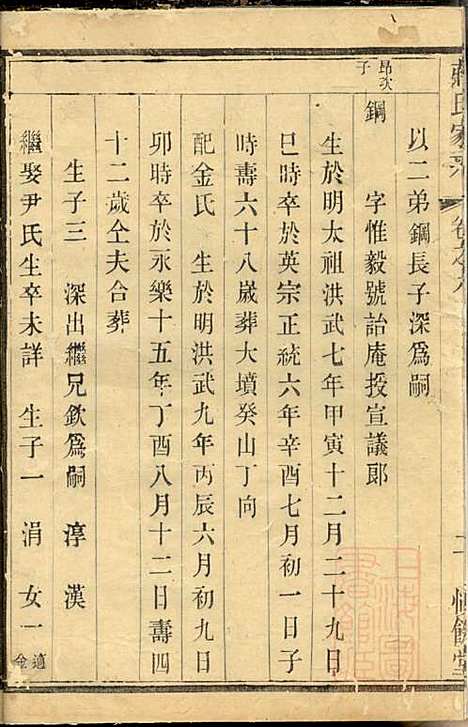 以二弟鋼長子深爲嗣
昂次子
鋼 字惟毅號詒庵授宣議郎
生於明太祖洪武七年甲寅十二月二十九日
巳時卒於英宗正統六年辛酉七月初一日子
時壽六十八歲葬大墳癸山丁向
配金氏 生於明洪武九年丙辰六月初九日
卯時卒於永樂十五年丁酉八月十二日壽四
十二歲仝夫合葬
生子三 深出繼兄欽爲嗣 淳 漢
繼娶尹氏生卒未詳 生子一 涓 女一 適金